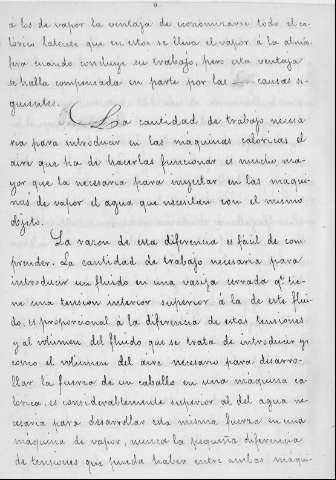 a los de vapor la ventaja de economizarse todo el ca-
lórico latente que en estos se lleva el vapor á la atmós-
fera cuando concluye su trabajo, pero esta ventaja
se halla compensada en parte por las causas si-
guientes.
La cantidad de trabajo necesa-
ria para introducir en las maquinas caloricas el
aire que ha de hacerlas funcionar es mucho ma-
yor que la necesaria para inyectar en las maqui-
nas de vapor el agua que necesitan con el mismo
objeto.
La razon de esa diferencia es fácil de com-
prender. La cantidad de trabajo necesaria para
introducir un fluido en una vasija cerrada qe. tie-
ne una tension interior superior á la de este flui-
do, es proporcional á la diferencia de estas tensiones
y al volumen del fluido que se trata de introducir y
como el volumen del aire necesario para desarro-
llar la fuerza de un caballo en una máquina ca-
lorica, es considerablemente superior al del agua nece-
saria para desarrollar esta misma fuerza en una
maquina de vapor, nunca la pequeña diferencia
de tensiones que pueda haber entre ambas máqui-